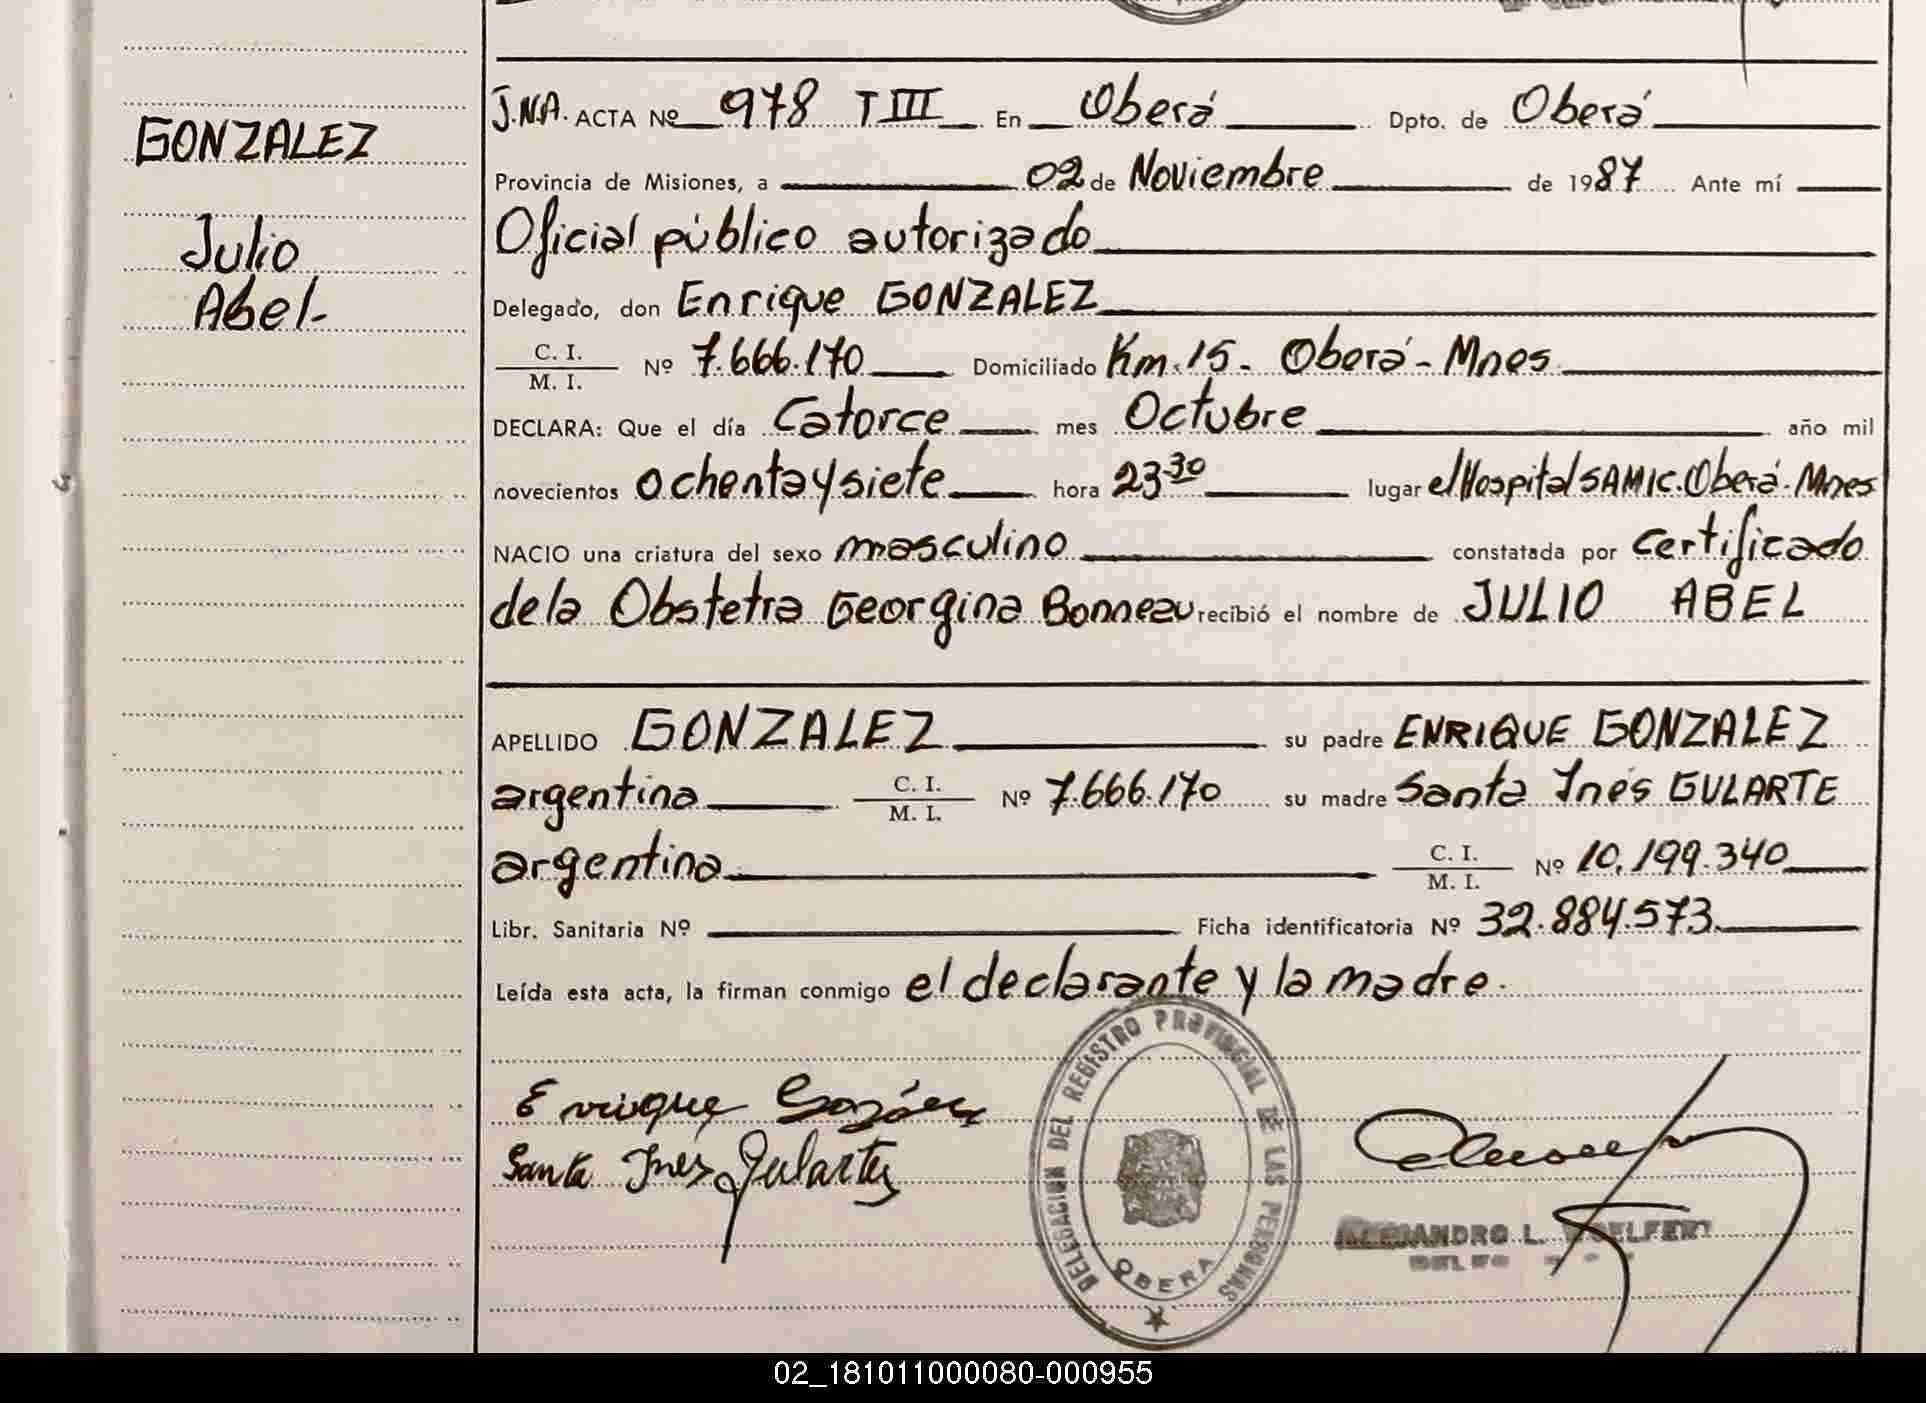 GONZALEZ
Julio
Abel-
J.N.A. ACTA Nº 978 T III En Oberá Dpto. de Oberá
Provincia de Misiones, a 02 de Noviembre de 1987 Ante mí
Oficial público autorizado
Delegado, don Enrique GONZALEZ
C. I.
M. I. Nº 7.666.170 Domiciliado Km. 15 - Oberá - Mnes
DECLARA: Que el día Catorce mes Octubre año mil
novecientos ochenta y siete hora 23 30 lugar el Hospital SAMIC. Oberá - Mnes
NACIO una criatura del sexo masculino constatada por certificado
de la Obstetra Georgina Bonneau recibió el nombre de JULIO ABEL
APELLIDO GONZALEZ su padre ENRIQUE GONZALEZ
argentina C. I. M. I. Nº 7.666.170 su madre Santa Inés GULARTE
argentina C. I. M. I. Nº 10.199.340
Libr. Sanitaria Nº Ficha identificatoria Nº 32.884.573
Leída esta acta, la firman conmigo el declarante y la madre.
DELEGACION DEL REGISTRO PROVINCIAL DE LAS PERSONAS
OBERA
Enrique González
Santa Inés Gularte
ALEJANDRO L.
02_181011000080-000955